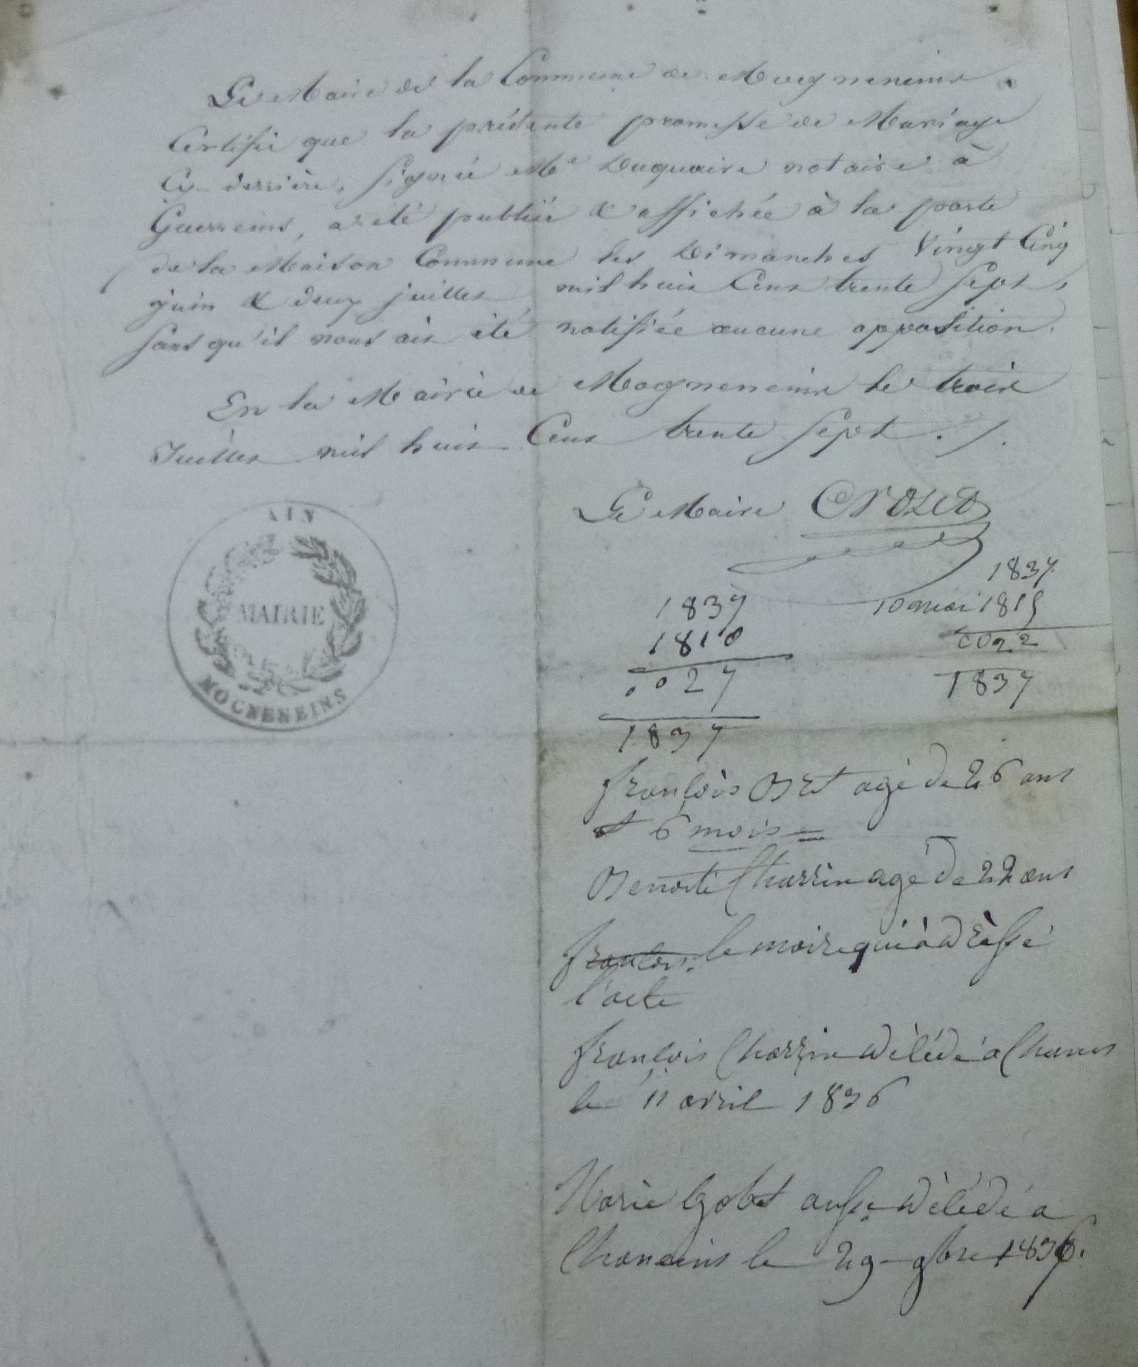 Le Maire de la Commune de Mogneneins
Certifie que la présente promesse de Mariage
Ci-derrière, signée Me Duquaire notaire à
Guerreins, a été publiée & affichée à la porte
de la Maison Commune les Dimanches Vingt Cinq
juin & deux juillet mil huit Cent trente Sept,
sans qu'il nous ait été notifiée aucune opposition.
En la Mairie de Mogneneins le trois
Juillet mil huit Cent trente sept ./.
Le Maire
AIN
MAIRIE
MOGNENEINS
1837
1810
0027
1837
1837
10 mai 1815
0022
1837
françois agé de 26 ans
et 6 mois
Benoite Charrin agé de 22 ans
françois le maire qui à drèssé
l'acte
françois Charrin délédé a
le 11 avril 1836
Marie aussi délédé a
Chaneins le 29 9bre 1836.